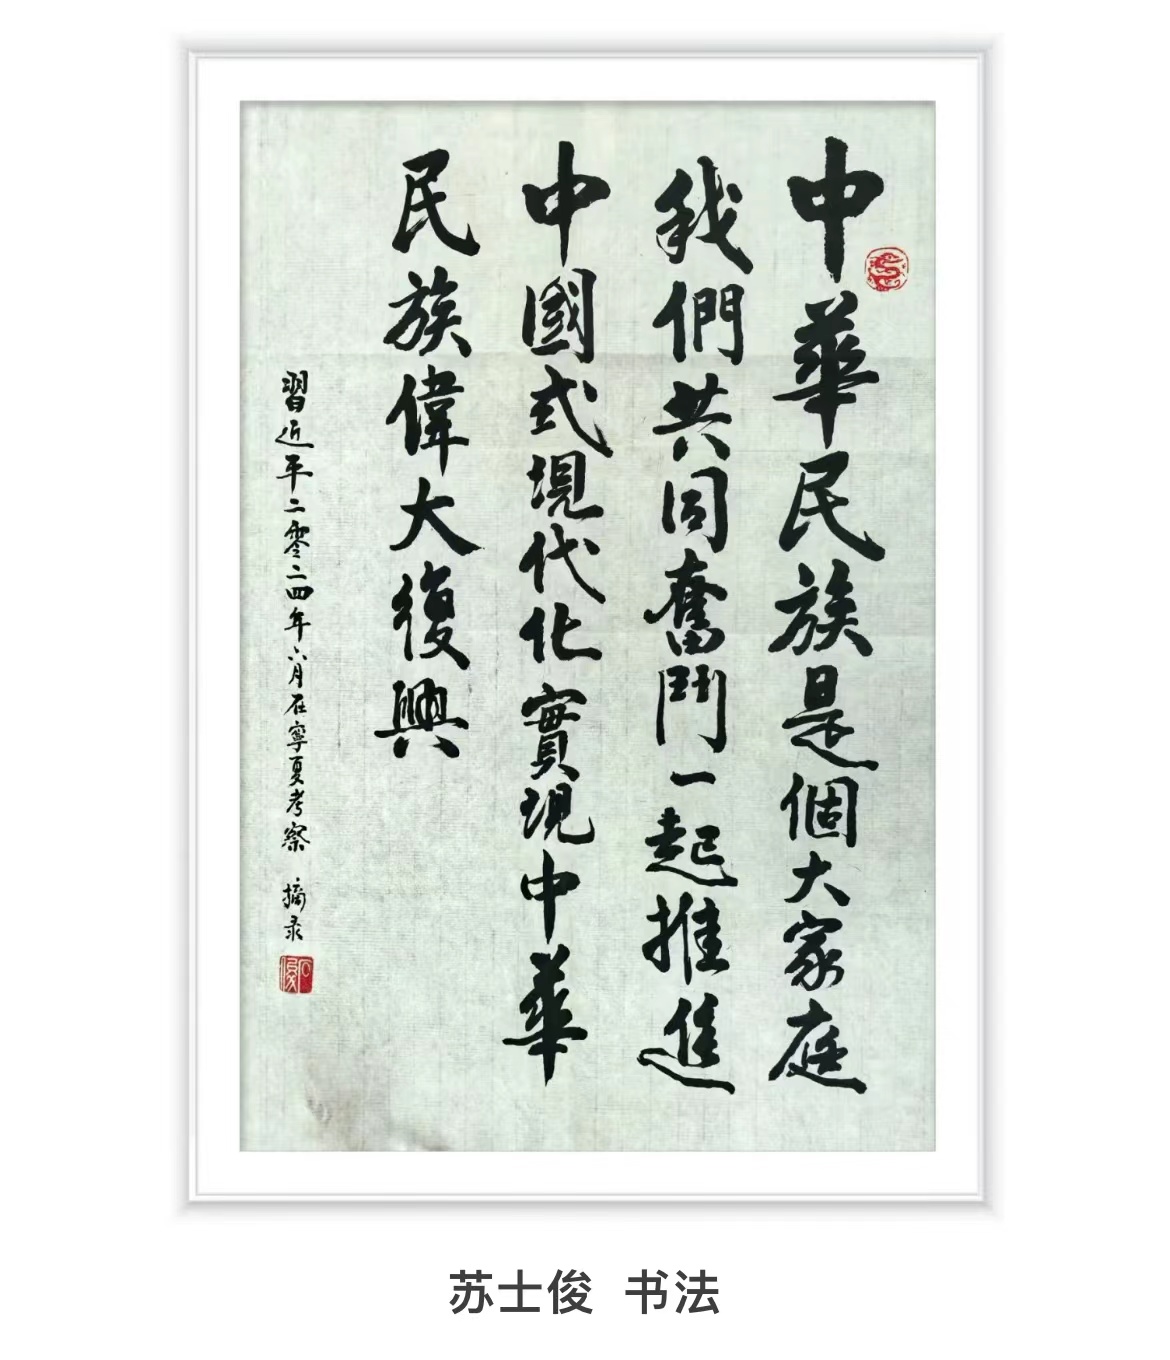 中華民族是個大家庭
我們共同奮鬥一起推進
中國式現代化實現中華
民族偉大復興
習近平二零二四年六月在寧夏考察 摘录
苏士俊 书法